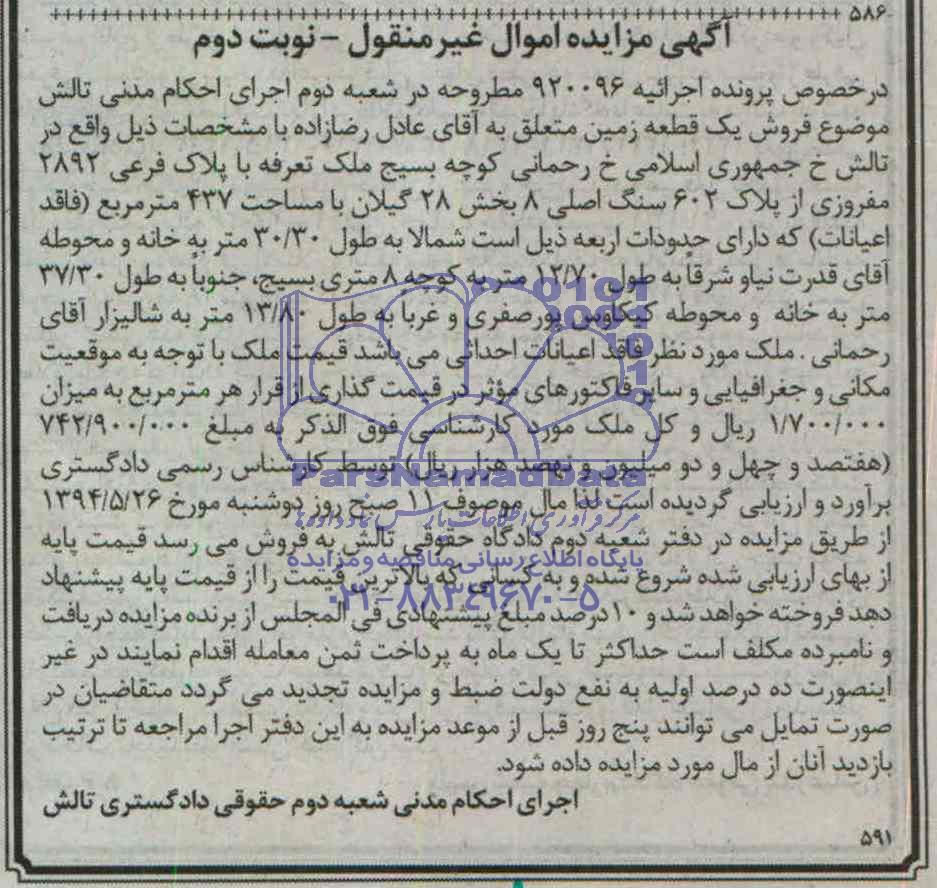 ۵۸۶
آگهی مزایده اموال غیرمنقول - نوبت دوم
درخصوص پرونده اجرائیه ۹۲۰۰۹۶ مطروحه در شعبه دوم اجرای احکام مدنی تالش
موضوع فروش یک قطعه زمین متعلق به آقای عادل رضازاده با مشخصات ذیل واقع در
تالش خ جمهوری اسلامی خ رحمانی کوچه بسیج ملک تعرفه با پلاک فرعی ۲۸۹۲
مفروزی از پلاک ۶۰۲ سنگ اصلی ۸ بخش ۲۸ گیلان با مساحت ۴۳۷ مترمربع (فاقد
اعیانات) که دارای حدودات اربعه ذیل است شمالا به طول ۳۰/۳۰ متر به خانه و محوطه
آقای قدرت نیاو شرقاً به طول ۱۲/۷۰ متر به کوچه ۸ متری بسیج، جنوباً به طول ۳۷/۳۰
متر به خانه و محوطه کیکاوس پورصفری و غربا به طول ۱۳/۸۰ متر به شالیزار آقای
رحمانی . ملک مورد نظر فاقد اعیانات احداثی می باشد قیمت ملک با توجه به موقعیت
مکانی و جغرافیایی و سایر فاکتورهای مؤثر در قیمت گذاری از قرار هر مترمربع به میزان
۱/۷۰۰/۰۰۰ ریال و کل ملک مورد کارشناسی فوق الذکر به مبلغ ۷۴۲/۹۰۰/۰۰۰
(هفتصد و چهل و دو میلیون و نهصد هزار ریال) توسط کارشناس رسمی دادگستری
ParsNamadData
برآورد و ارزیابی گردیده است لذا مال موصوف ۱۱ صبح روز دوشنبه مورخ ۱۳۹۴/۵/۲۶
مرکز فرآوری اطلاعات پارس نماد داده ها
از طریق مزایده در دفتر شعبه دوم دادگاه حقوقی تالش به فروش می رسد قیمت پایه
پایگاه اطلاع رسانی مناقصه و مزایده
از بهای ارزیابی شده شروع شده و به کسانی که بالاترین قیمت را از قیمت پایه پیشنهاد
۰۲۱-۸۸۳۴۹۶۷۰-۵
دهد فروخته خواهد شد و ۱۰ درصد مبلغ پیشنهادی فی المجلس از برنده مزایده دریافت
و نامبرده مکلف است حداکثر تا یک ماه به پرداخت ثمن معامله اقدام نمایند در غیر
اینصورت ده درصد اولیه به نفع دولت ضبط و مزایده تجدید می گردد متقاضیان در
صورت تمایل می توانند پنج روز قبل از موعد مزایده به این دفتر اجرا مراجعه تا ترتیب
بازدید آنان از مال مورد مزایده داده شود.
اجرای احکام مدنی شعبه دوم حقوقی دادگستری تالش
۵۹۱